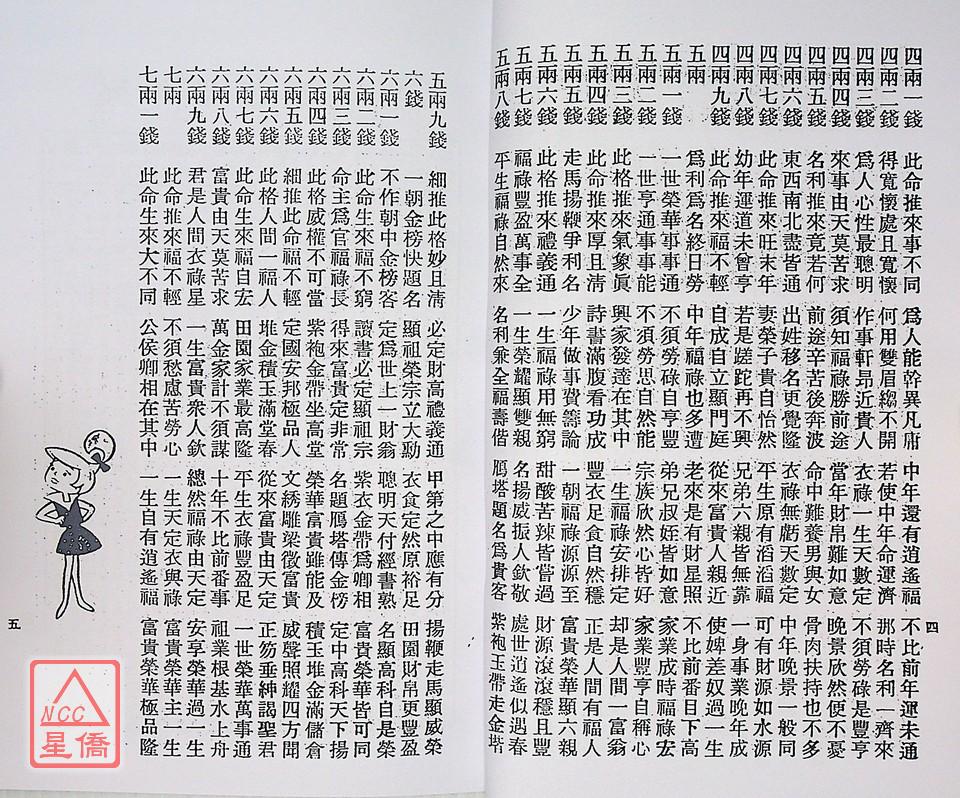 四兩一錢 此命推來事不同 爲人能幹異凡庸 中年還有逍遙福 不比前年運未通
四兩二錢 得寬懷處且寬懷 何用雙眉縐不開 若使中年命運濟 那時名利一齊來
四兩三錢 爲人心性最聰明 作事軒昻近貴人 衣祿一生天數定 不須勞碌是豐亨
四兩四錢 來事由天莫苦求 須知福祿勝前途 當年財帛難如意 晚景欣然便不憂
四兩五錢 名利推來竟若何 前途辛苦後奔波 命中難養男與女 骨肉扶持也不多
四兩六錢 東西南北盡皆通 出姓移名更覺隆 衣祿無虧天數定 中年晚景一般同
四兩七錢 此命推來旺末年 妻榮子貴自怡然 平生原有滔滔福 可有財源如水源
四兩八錢 幼年運道未曾亨 若是蹉跎再不興 兄弟六親皆無靠 一身事業晚年成
四兩九錢 此命推來福不輕 自成自立顯門庭 從來富貴人親近 使婢差奴過一生
五兩 爲利爲名終日勞 中年福祿也多遭 老來是有財星照 不比前番目下高
五兩一錢 一世榮華事事通 不須勞碌自亨豐 弟兄叔姪皆如意 家業成時福祿宏
五兩二錢 一世亨通事事能 不須勞思自然能 宗族欣然心皆好 家業豐亨自稱心
五兩三錢 此格推來氣象眞 興家發達在其中 一生福祿安排定 却是人間一富翁
五兩四錢 此命推來厚且清 詩書滿腹看功成 豐衣足食自然穩 正是人間有福人
五兩五錢 走馬揚鞭爭利名 少年做事費籌論 一朝福祿源源至 富貴榮華顯六親
五兩六錢 此格推來禮義通 一生福祿用無窮 甜酸苦辣皆嘗過 財源滾滾穩且豐
五兩七錢 福祿豐盈萬事全 一生榮耀顯雙親 名揚威振人欽敬 處世逍遙似遇春
五兩八錢 平生福祿自然來 名利兼全福壽偕 鴈塔題名爲貴客 紫袍玉帶走金堦
四
五兩九錢 細推此格妙且清 必定財高禮義通 甲第之中應有分 揚鞭走馬顯威榮
六錢 一朝金榜快題名 顯祖榮宗立大勳 衣食定然原裕足 田園財帛更豐盈
六兩一錢 不作朝中金榜客 定爲世上一財翁 聰明天付經書熟 名顯高科自是榮
六兩二錢 此命生來福不窮 讀書必定顯祖宗 紫衣金帶爲卿相 富貴榮華皆可同
六兩三錢 命主爲官福祿長 得來富貴定非常 名題鴈塔傳金榜 定中高科天下揚
六兩四錢 此格威權不可當 紫袍金帶坐高堂 榮華富貴雖能及 積玉堆金滿儲倉
六兩五錢 細推此命福不輕 定國安邦極品人 文綉雕梁徵富貴 威聲照耀四方聞
六兩六錢 此格人間一福人 堆金積玉滿堂春 從來富貴由天定 正笏垂紳謁聖君
六兩七錢 此命生來福自宏 田園家業最高隆 平生衣祿豐盈足 一世榮華萬事通
六兩八錢 富貴由天莫苦求 萬金家計不須謀 十年不比前番事 祖業根基水上舟
六兩九錢 君是人間衣祿星 一生富貴衆人欽 總然福祿由天定 安享榮華過一生
七兩 此命推來福不輕 不須愁慮苦勞心 一生天定衣與祿 富貴榮華主一生
七兩一錢 此命生來大不同 公侯卿相在其中 一生自有逍遙福 富貴榮華極品隆
五
NCC
星僑